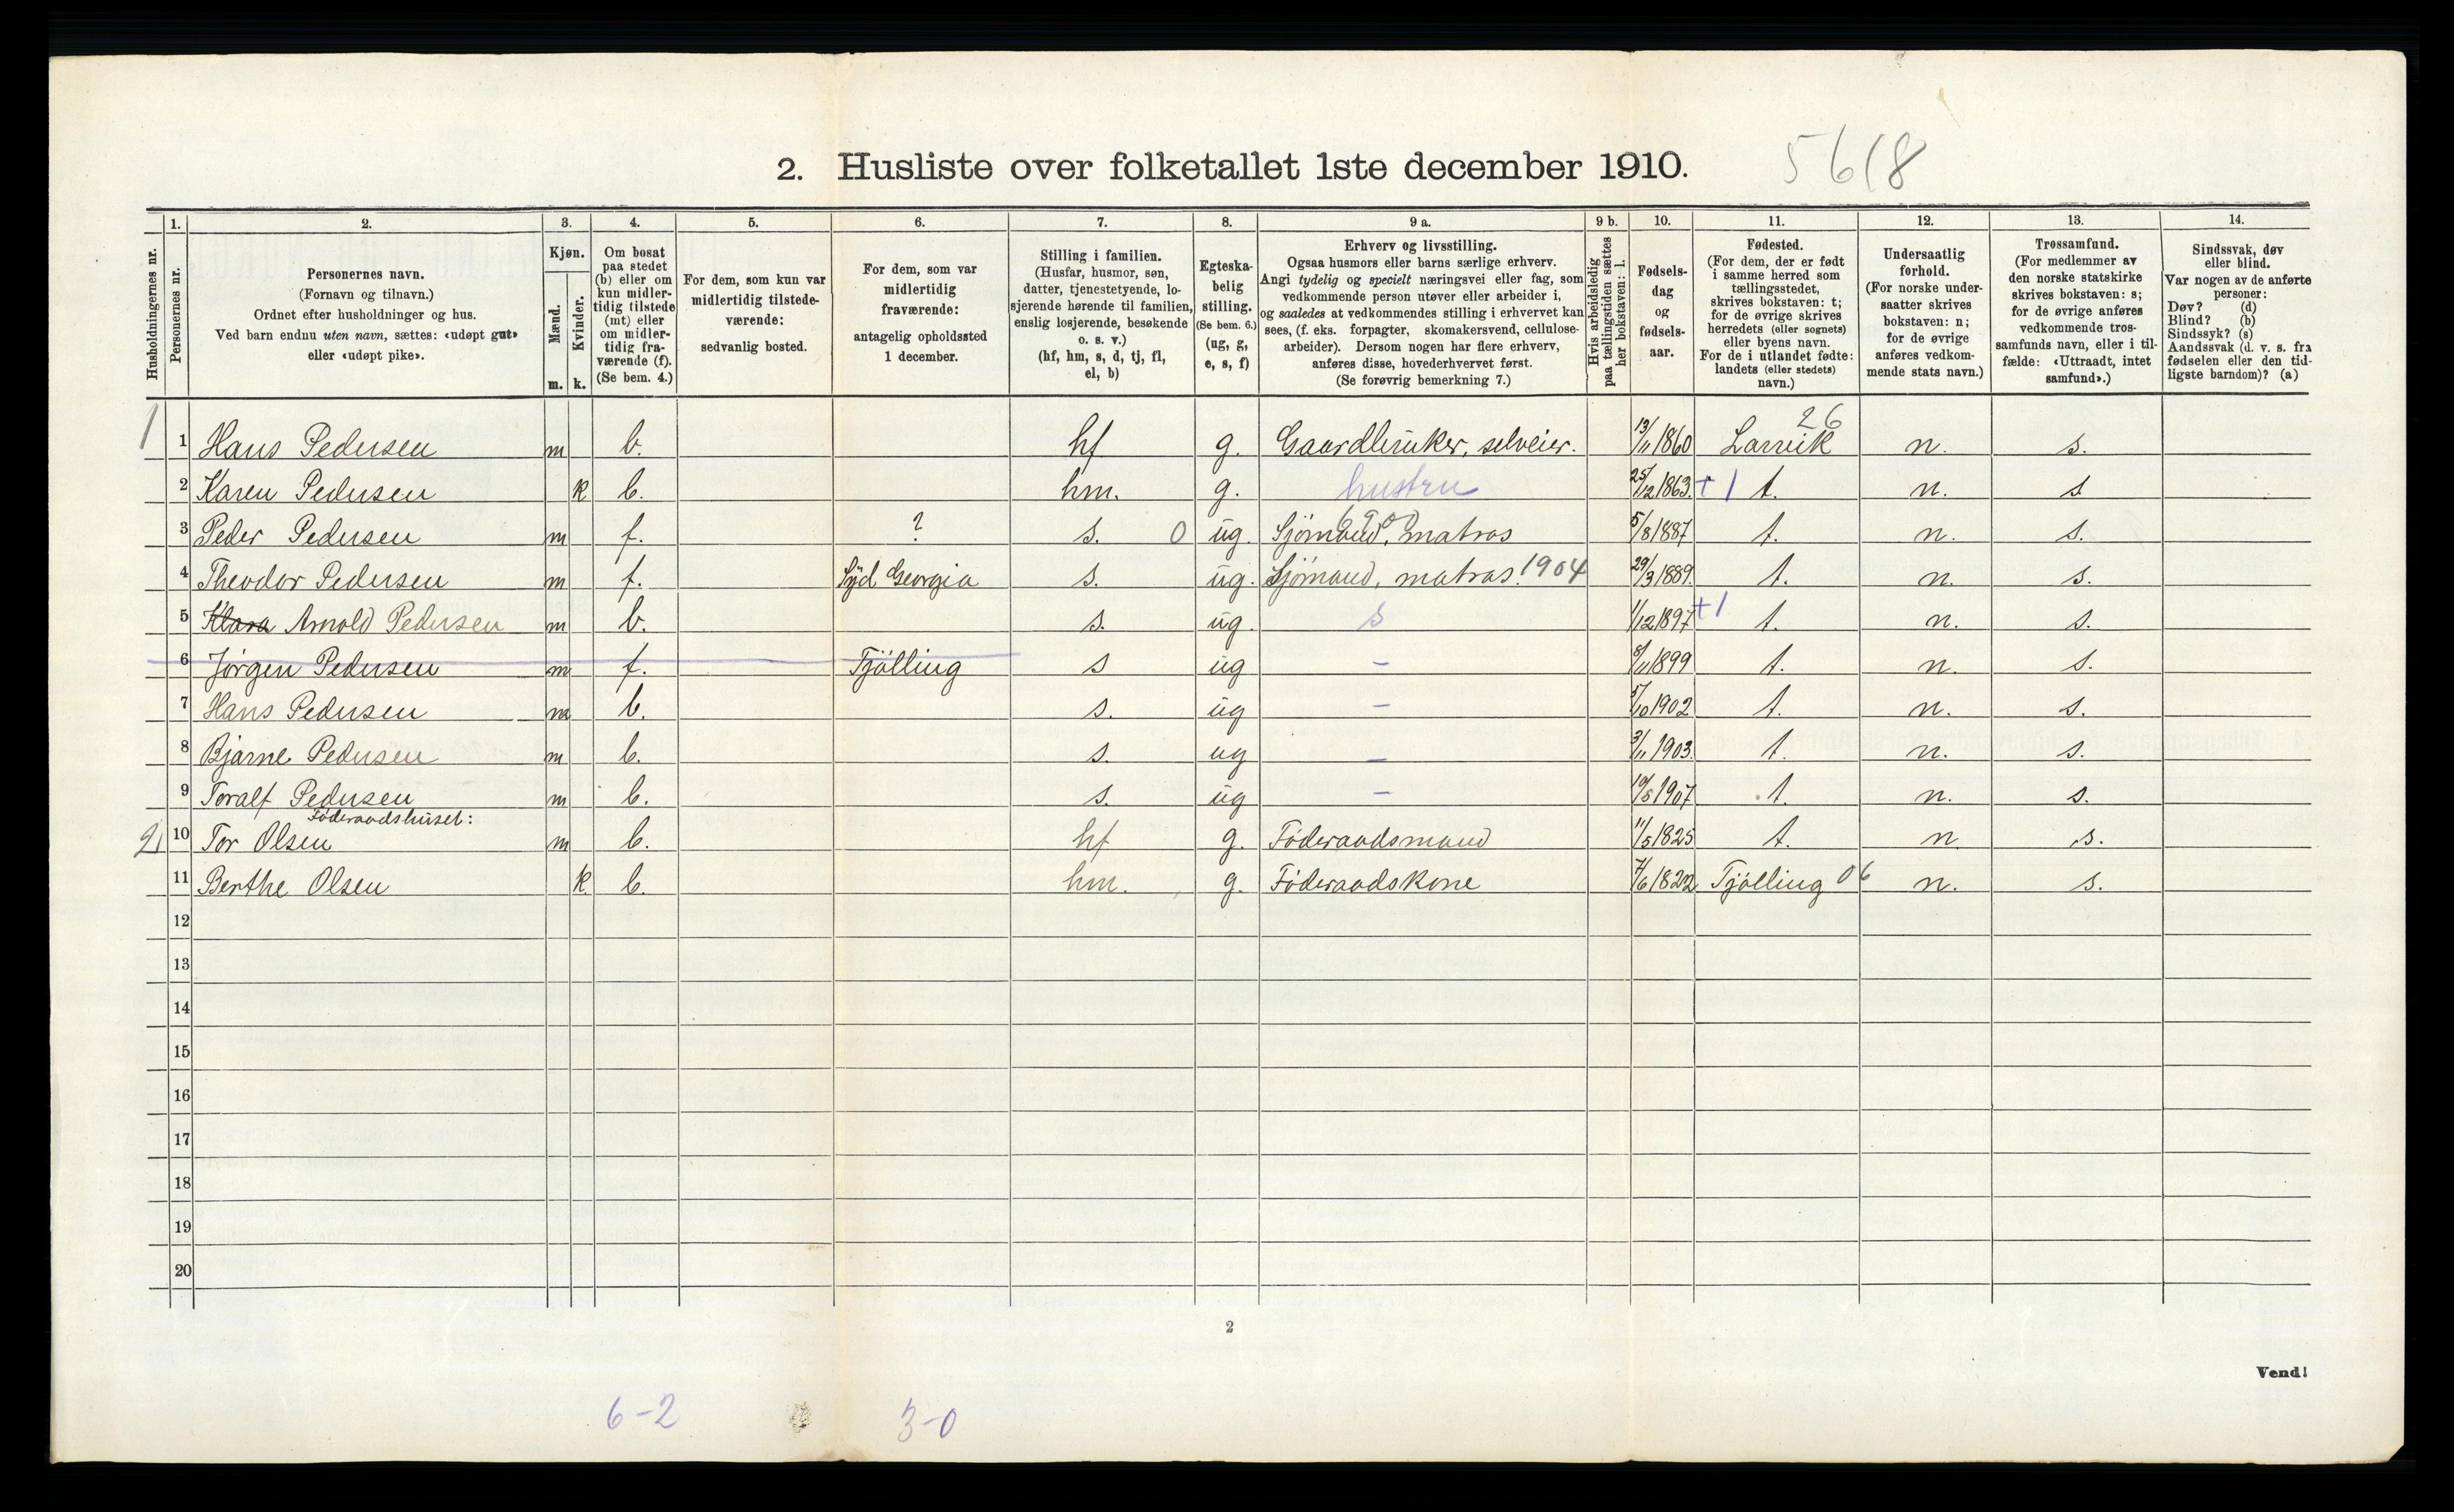 2. Husliste over folketallet 1ste december 1910. 5618
Husholdningernes nr.
1. Personernes nr.
2. Personernes navn. (Fornavn og tilnavn.) Ordnet efter husholdninger og hus. Ved barn endnu uten navn, sættes: «udøpt gut» eller «udøpt pike».
3. Kjøn. Mænd. m. Kvinder. k.
4. Om bosat paa stedet (b) eller om kun midlertidig tilstede (mt) eller om midlertidig fraværende (f). (Se bem. 4.)
5. For dem, som kun var midlertidig tilstedeværende: sedvanlig bosted.
6. For dem, som var midlertidig fraværende: antagelig opholdssted 1 december.
7. Stilling i familien. (Husfar, husmor, søn, datter, tjenestetyende, losjerende hørende til familien, enslig losjerende, besøkende o. s. v.) (hf, hm, s, d, tj, fl, el, b)
8. Egteskabelig stilling. (Se bem. 6.) (ug, g, e, s, f)
9 a. Erhverv og livsstilling. Ogsaa husmors eller barns særlige erhverv. Angi tydelig og specielt næringsvei eller fag, som vedkommende person utøver eller arbeider i, og saaledes at vedkommendes stilling i erhvervet kan sees, (f. eks. forpagter, skomakersvend, cellulosearbeider). Dersom nogen har flere erhverv, anføres disse, hovederhvervet først. (Se forøvrig bemerkning 7.)
9 b. Hvis arbeidsledig paa tællingstiden sættes her bokstaven: l.
10. Fødselsdag og fødselsaar.
11. Fødested. (For dem, der er født i samme herred som tællingsstedet, skrives bokstaven: t; for de øvrige skrives herredets (eller sognets) eller byens navn. For de i utlandet fødte: landets (eller stedets) navn.)
12. Undersaatlig forhold. (For norske undersaatter skrives bokstaven: n; for de øvrige anføres vedkommende stats navn.)
13. Trossamfund. (For medlemmer av den norske statskirke skrives bokstaven: s; for de øvrige anføres vedkommende trossamfunds navn, eller i tilfælde: «Uttraadt, intet samfund».)
14. Sindssvak, døv eller blind. Var nogen av de anførte personer: Døv? (d) Blind? (b) Sindssyk? (s) Aandssvak (d. v. s. fra fødselen eller den tidligste barndom)? (a)
1 1 Hans Pedersen m b. hf g. Gaardbruker, selveier. 13/11 1860 Larvik 26 n. s.
2 Karen Pedersen k b. hm. g. hustru 25/12 1863. +1 t. n. s
3 Peder Pedersen m f. ? s. 0 ug. Sjömand, matros 5/8 1887 t. n. s.
4 Theodor Pedersen m f. Syd Georgia s. ug. Sjömand, matros. 1904 29/3 1889. t. n. s.
5 Klara Arnold Pedersen m b. s. ug. s 1/12 1897 +1 t. n. s.
6 Jørgen Pedersen m f. Tjölling s ug - 8/11 1899 t. n. s.
7 Hans Pedersen m b. s. ug - 5/10 1902 t. n. s.
8 Bjarne Pedersen m b. s. ug - 3/11 1903. t. n. s.
9 Toralf Pedersen m b. s. ug - 19/5 1907 t. n. s.
Föderaadshuset:
2 10 Tor Olsen m b. hf g. Föderaadsmand 11/5 1825 t. n s.
11 Berthe Olsen k b. hm. g. Föderaadskone 7/6 1822 Tjölling 06 n. s.
12
13
14
15
16
17
18
19
20
2
Vend!
6-2 3-0